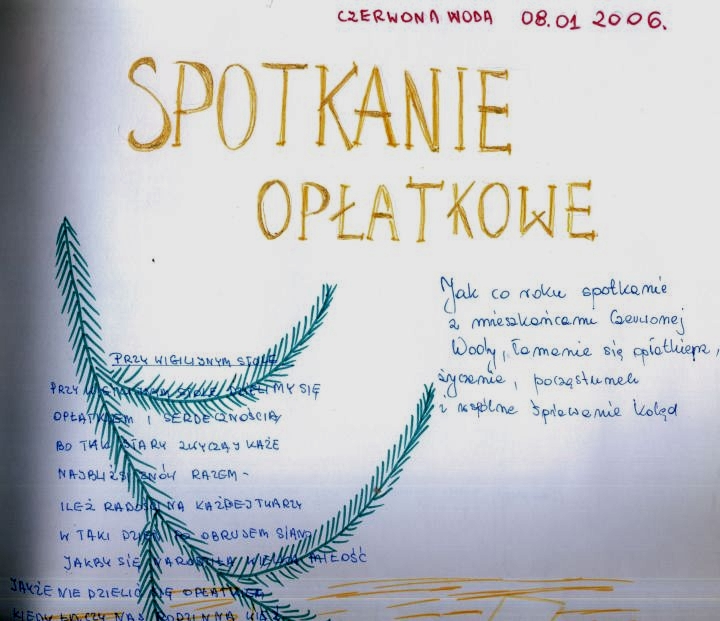 CZERWONA WODA 08.01 2006.
SPOTKANIE
OPŁATKOWE
Jak co roku spotkanie
z mieszkańcami Czerwonej
Wody, łamanie się opłatkiem,
życzenia, poczęstunek
i wspólne śpiewanie kolęd
PRZY WIGILIJNYM STOLE
PRZY WIGILIJNYM STOLE DZIELIMY SIĘ
OPŁATKIEM I SERDECZNOŚCIĄ
BO TAK STARY ZWYCZAJ KAŻE
NAJBLIŻSI ZNÓW RAZEM -
ILEŻ RADOŚCI NA KAŻDEJ TWARZY
W TAKI DZIEŃ PO OBRUSEM SIANO
JAKBY SIĘ NARODZIŁA WIELKA MIŁOŚĆ
JAKŻE NIE DZIELIĆ SIĘ OPŁATKIEM
KIEDY ŁĄCZY NAS RODZINNA WIĘŹ